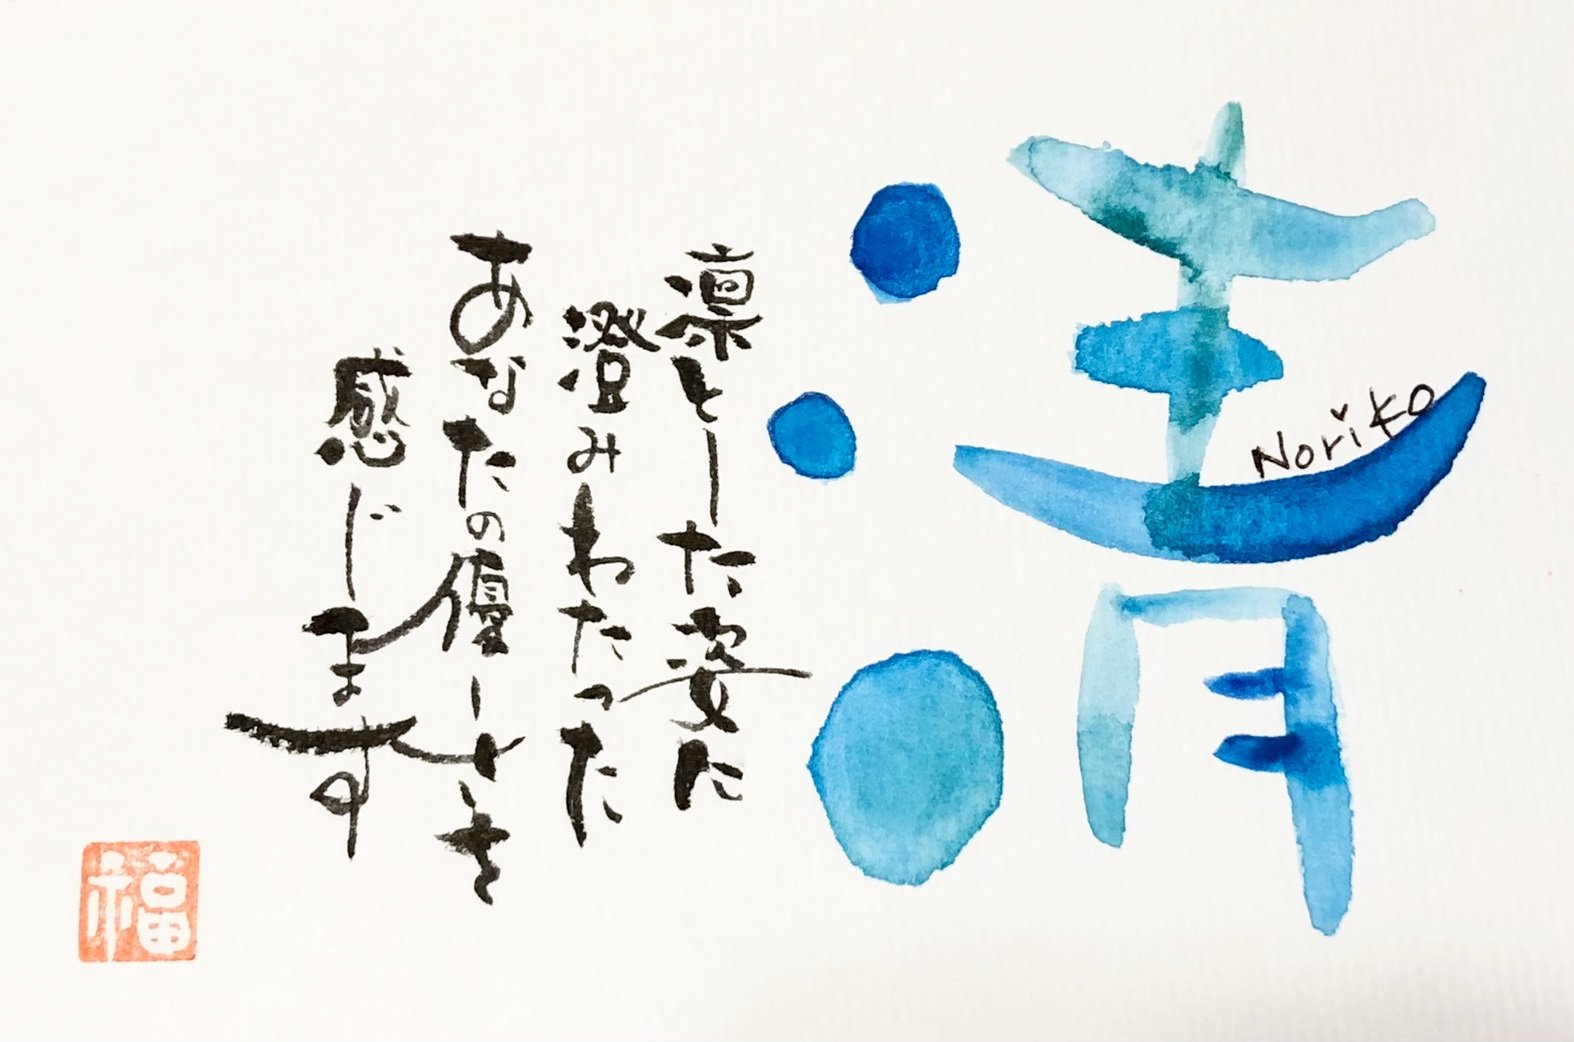 清
Noriko
凛とした姿に
澄みわたった
あなたの優しさを
感じます
福